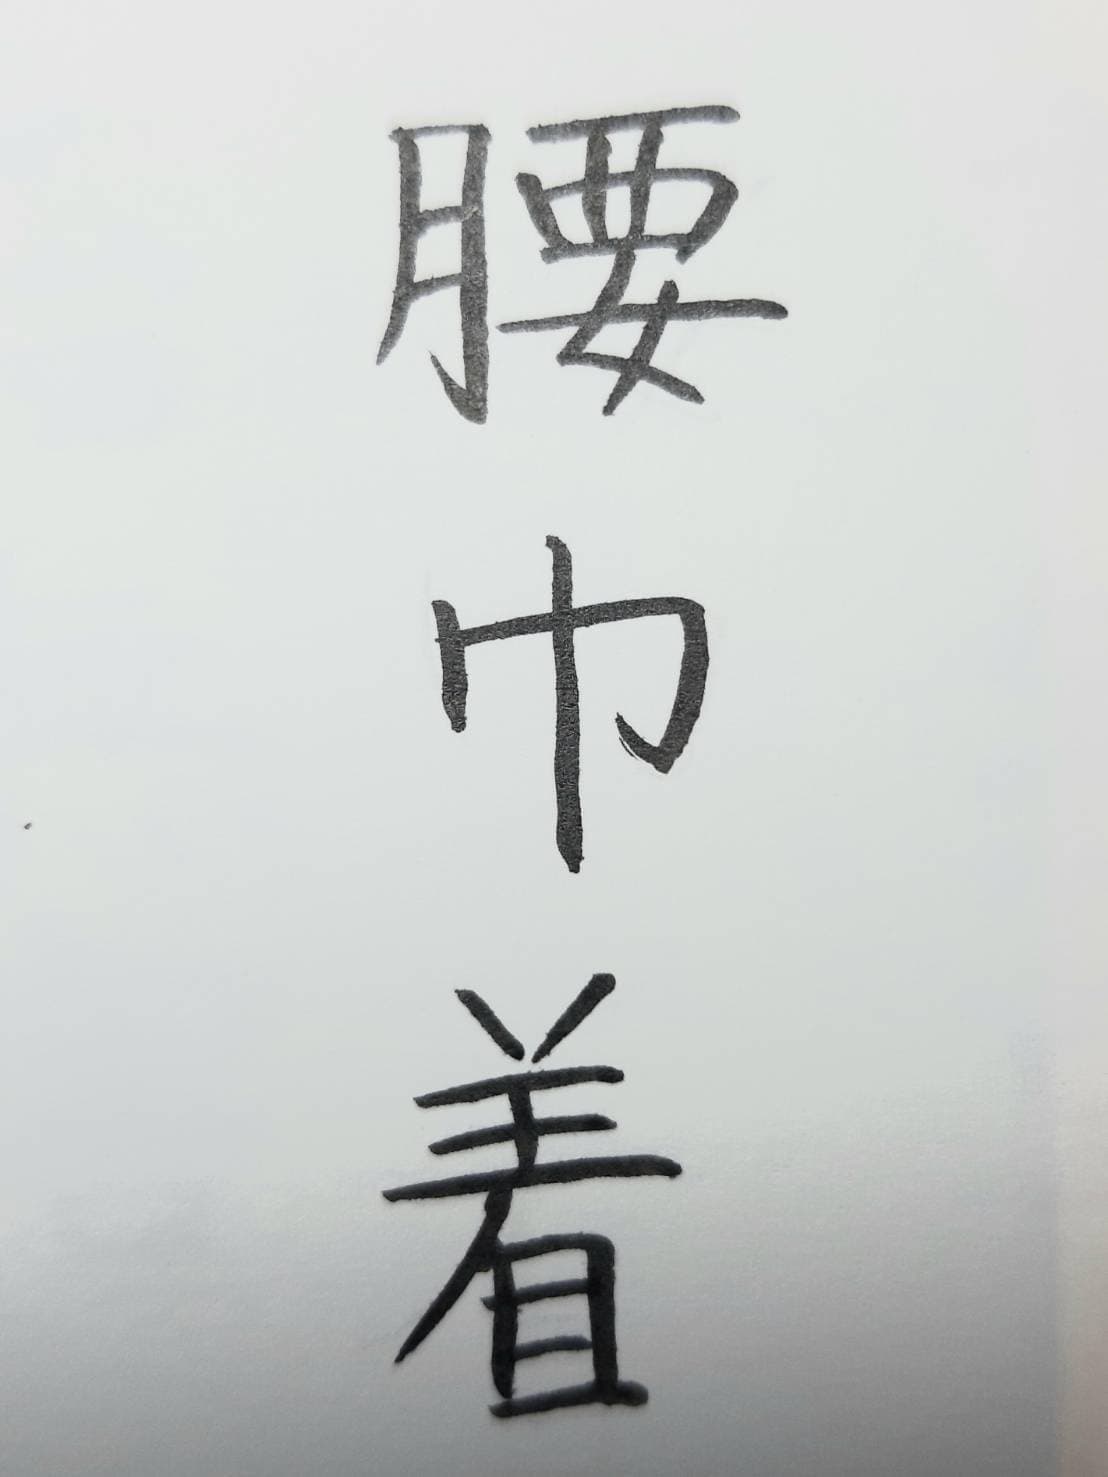 腰巾着